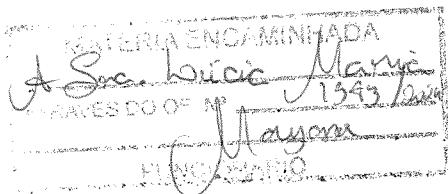 MATÉRIA ENCAMINHADA
A Sra. Lúcia Maria
ATRAVÉS DO OF. Nº 1949
Mayara
FUNCIONÁRIO